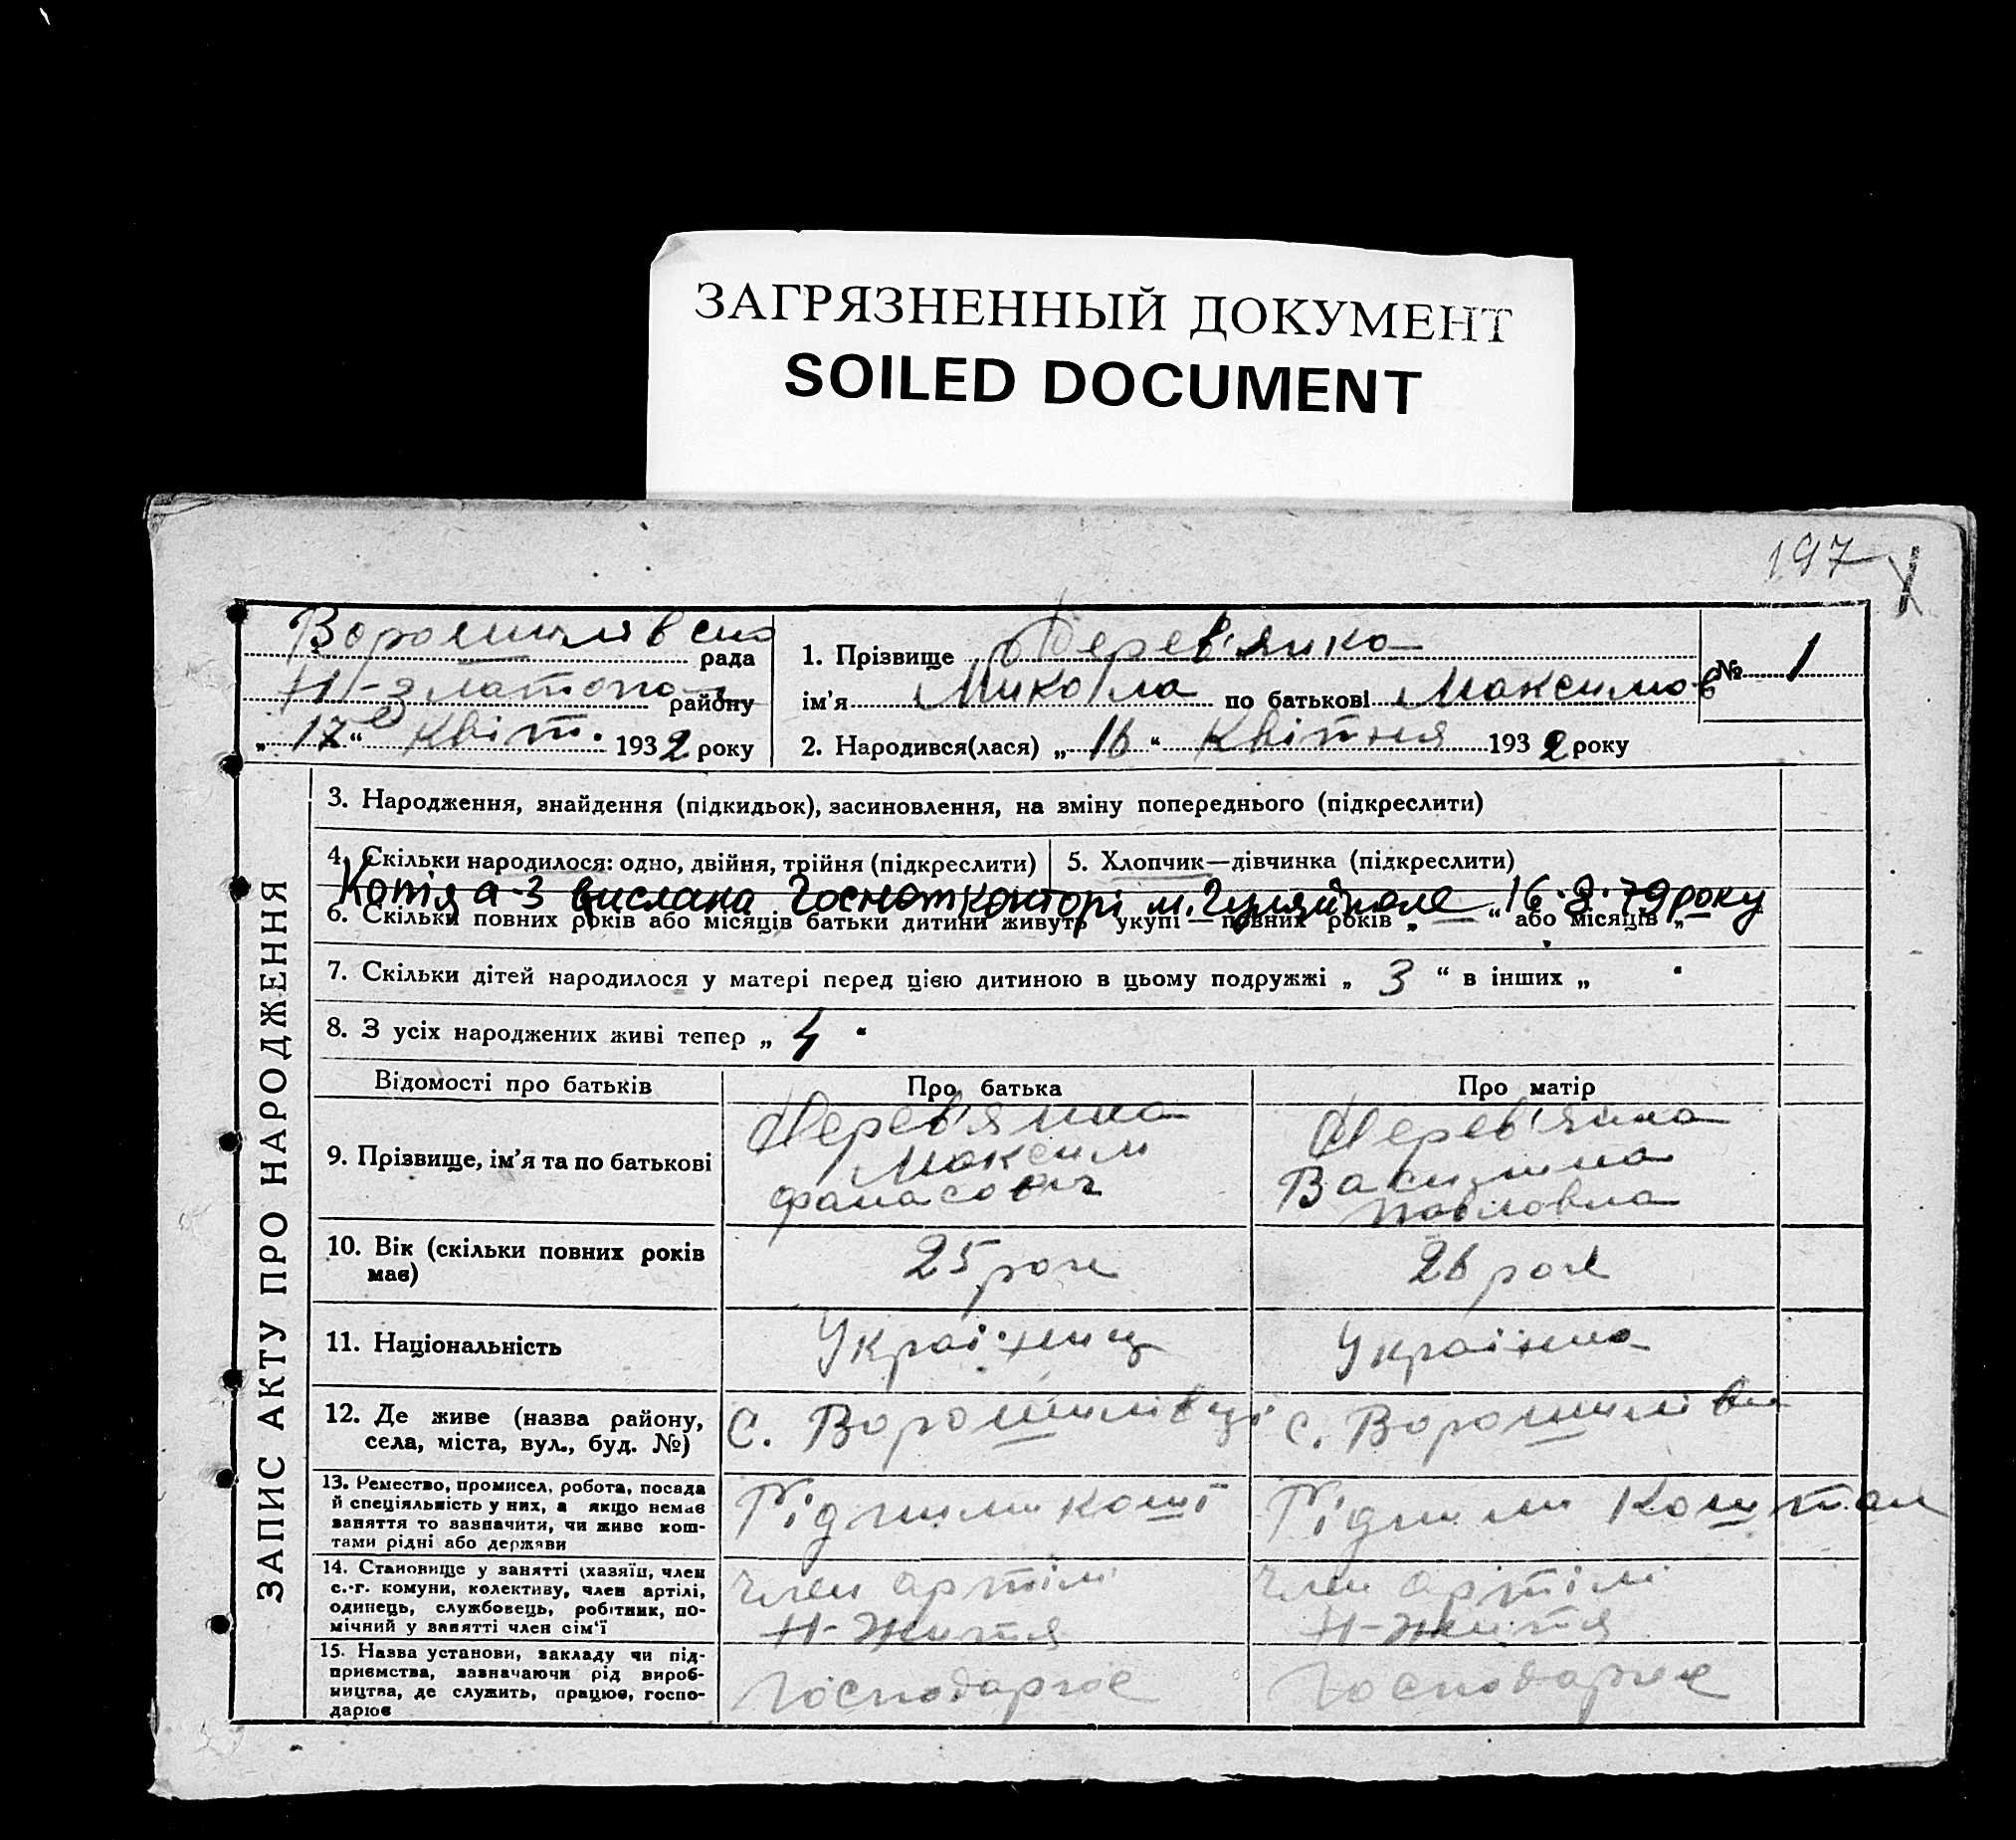 ЗАГРЯЗНЕННЫЙ ДОКУМЕНТ
SOILED DOCUMENT
197
Ворошилівсь рада
Н-златопо району
„ 17 “ Квіт. 1932 року
1. Прізвище Дерев'янко
ім'я Микола по батькові Максимов
2. Народився(лася) „ 16 “ Квітня 1932 року
№ 1
ЗАПИС АКТУ ПРО НАРОДЖЕННЯ
3. Народження, знайдення (підкидьок), засиновлення, на зміну попереднього (підкреслити)
4. Скільки народилося: одно, двійня, трійня (підкреслити)
5. Хлопчик—дівчинка (підкреслити)
Копія а-з вислана Госнотконторі м. Гуляйполе 16.8.79 року
6. Скільки повних років або місяців батьки дитини живуть укупі — повних років „ — “ або місяців „ —
7. Скільки дітей народилося у матері перед цією дитиною в цьому подружжі „ 3 “ в інших „ “
8. З усіх народжених живі тепер „ 4 “
Відомості про батьків
Про батька
Про матір
9. Прізвище, ім'я та по батькові
Дерев'янко
Максим
Фанасович
Дерев'янко
Василина
Павловна
10. Вік (скільки повних років
має)
25 роки
26 роки
11. Національність
Українец
Українка
12. Де живе (назва району,
села, міста, вул., буд. №)
с. Ворошилівці
с. Ворошилівки
13. Ремество, промисел, робота, посада
й спеціяльність у них, а якщо немає
заняття то зазначити, чи живе кош-
тами рідні або держави
Рідними кош
Рідними коштами
14. Становище у занятті (хазяїн, член
с.-г. комуни, колективу, член артілі,
одинець, службовець, робітник, по-
мічний у занятті член сім'ї
член артілі
Н-Життя
член артілі
Н-Життя
15. Назва установи, закладу чи під-
приємства, зазначаючи рід вироб-
ництва, де служить, працює, госпо-
дарює
Господарює
Господарює